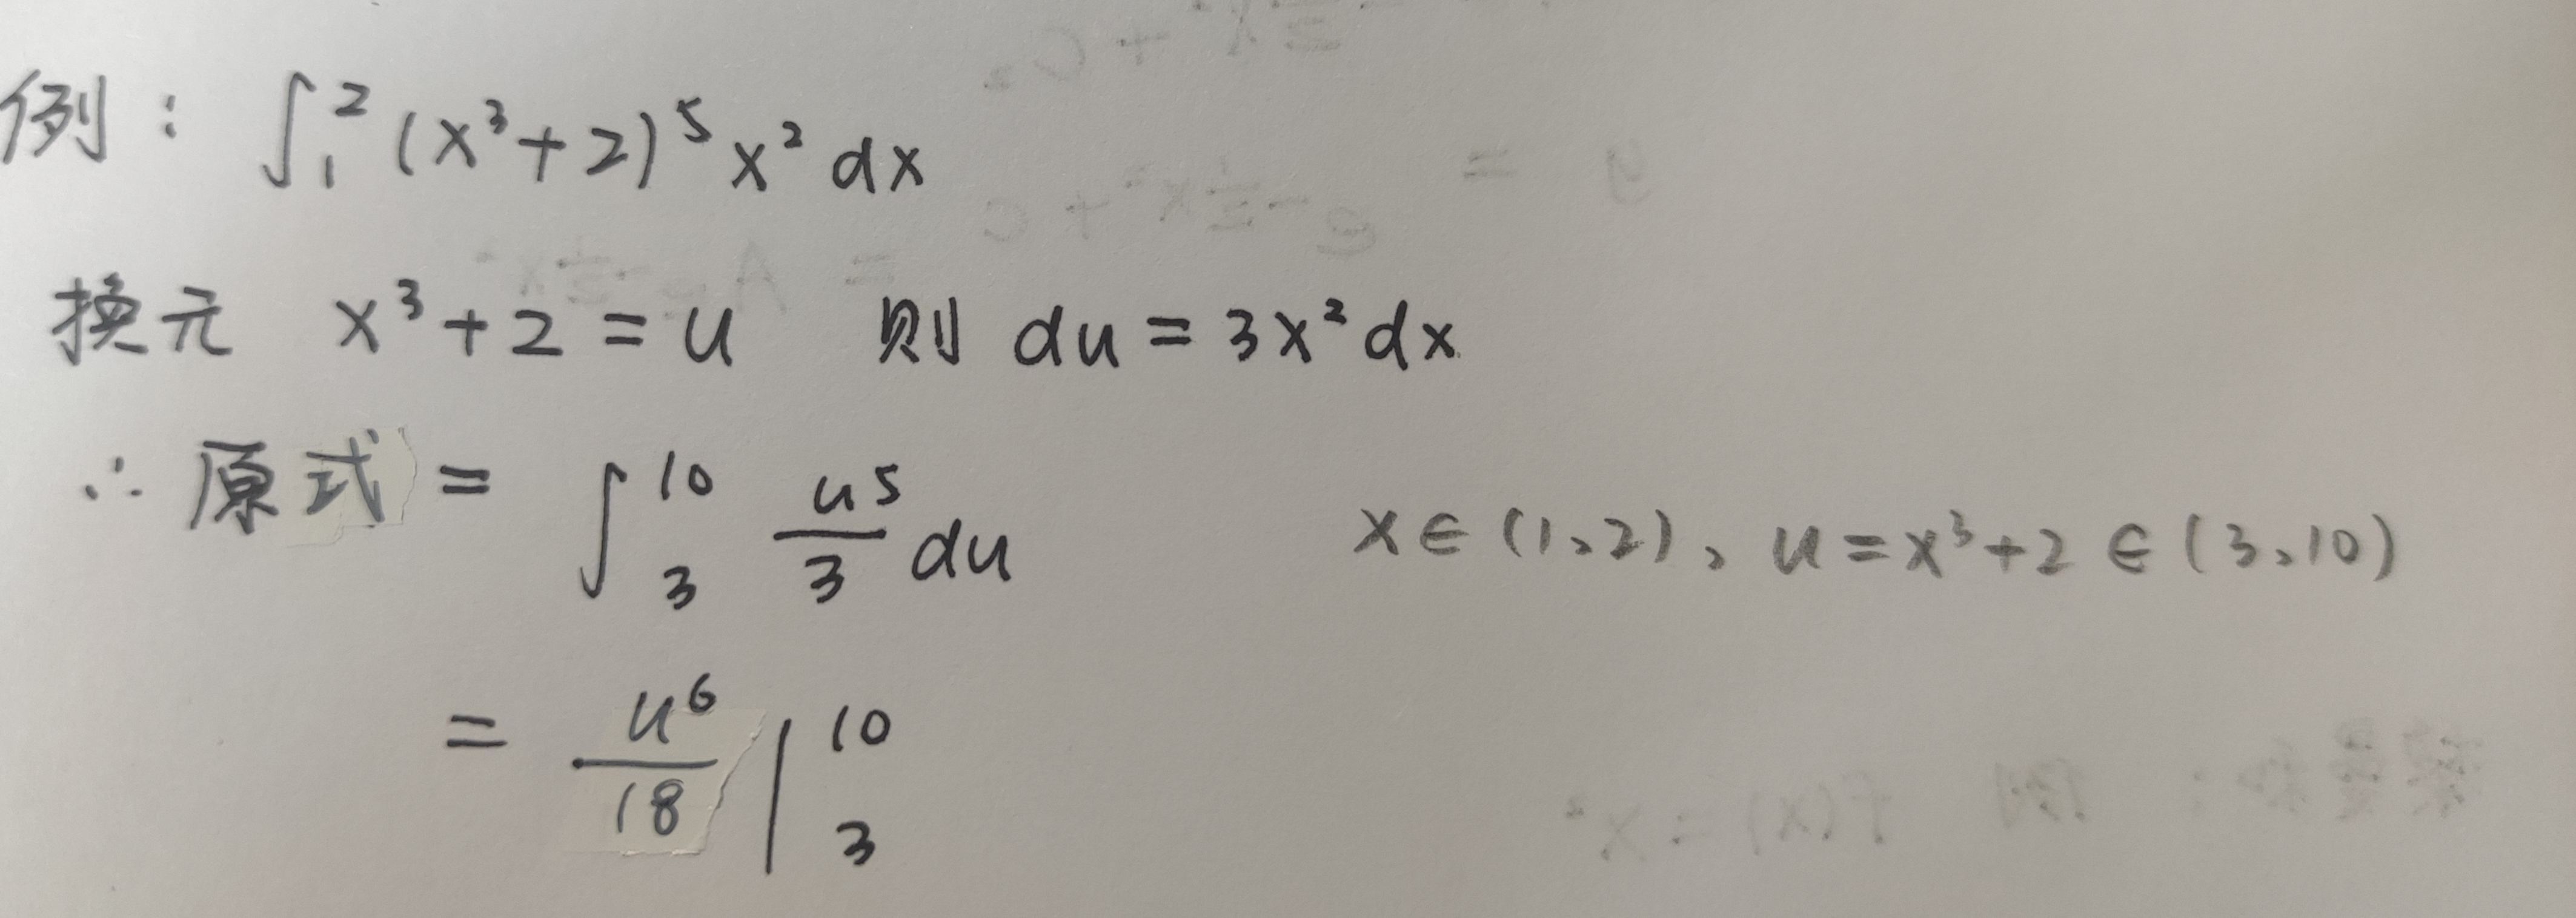 例：∫₁² (x³+2)⁵ x² dx
换元 x³+2=u 则 du=3x²dx
∴ 原式 = ∫₃¹⁰ u⁵/3 du x∈(1,2), u=x³+2∈(3,10)
= u⁶/18 |₃¹⁰